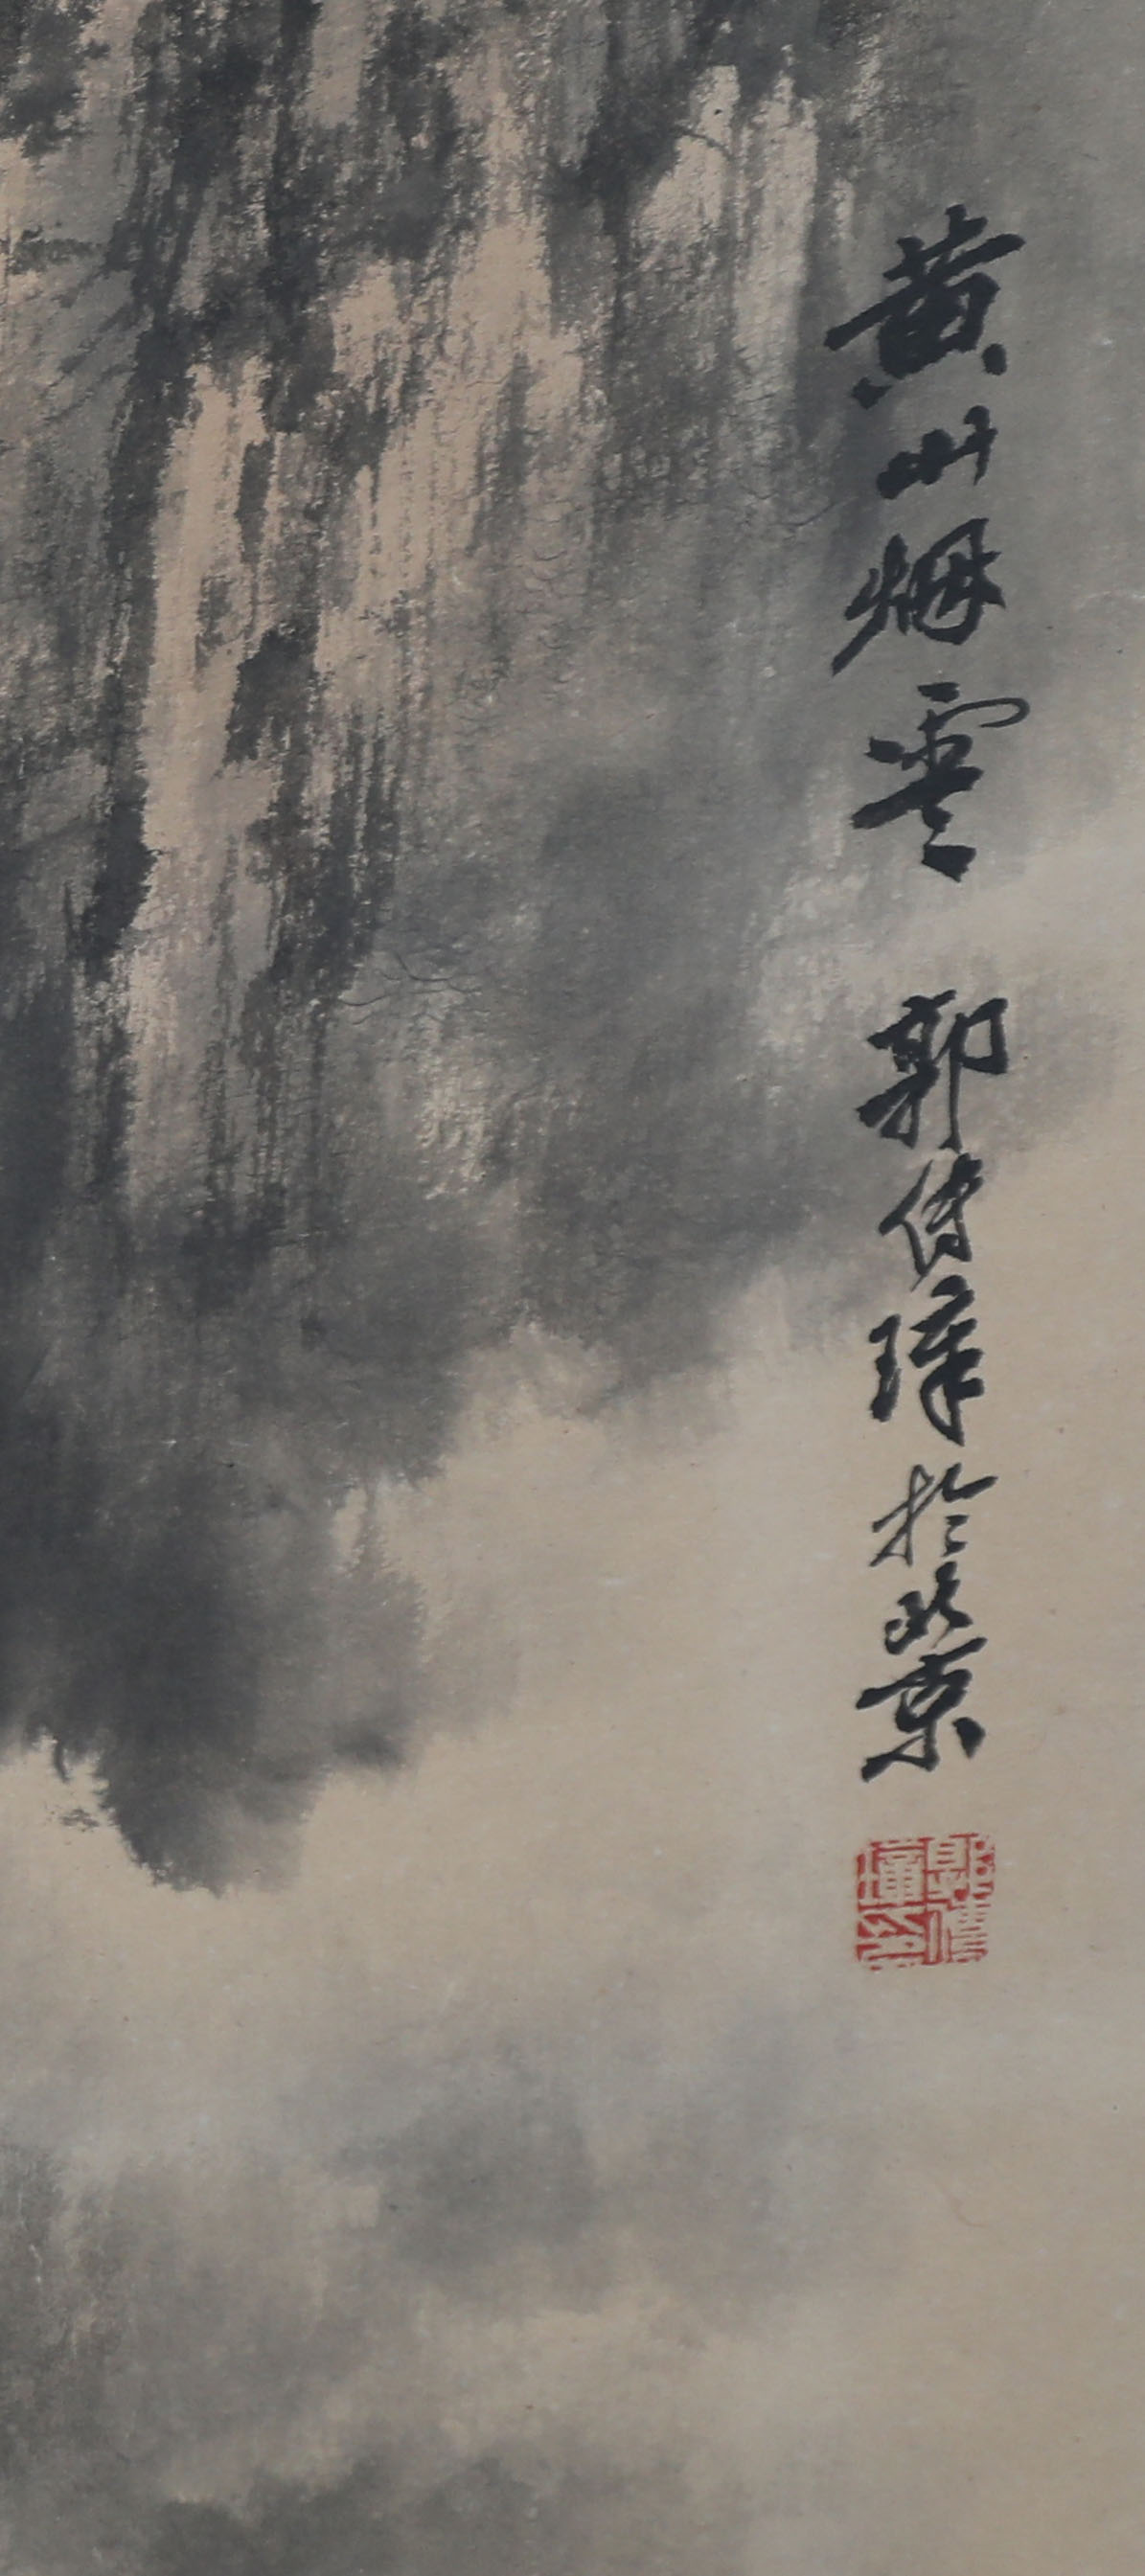 黄山烟雲 郭传璋於北京
郭傳
璋印